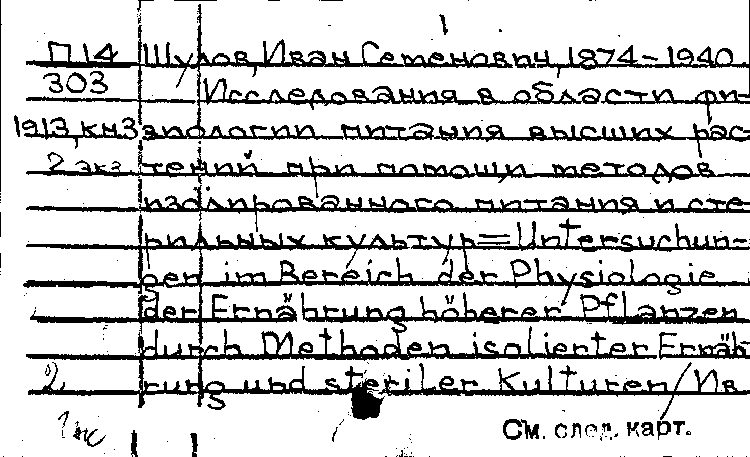 1
П14 Шулов, Иван Семенович, 1874-1940
303 Исследования в области фи-
1913, кн.3 зиологии питания высших рас-
2 экз. тений при помощи методов
изолированного питания и сте-
рильных культур=Untersuchun-
gen im Bereich der Physiologie
der Ernährung höherer Pflanzen
durch Methoden isolierter Ernäh-
2 rung und steriler Kulturen / Ив
См. след. карт.